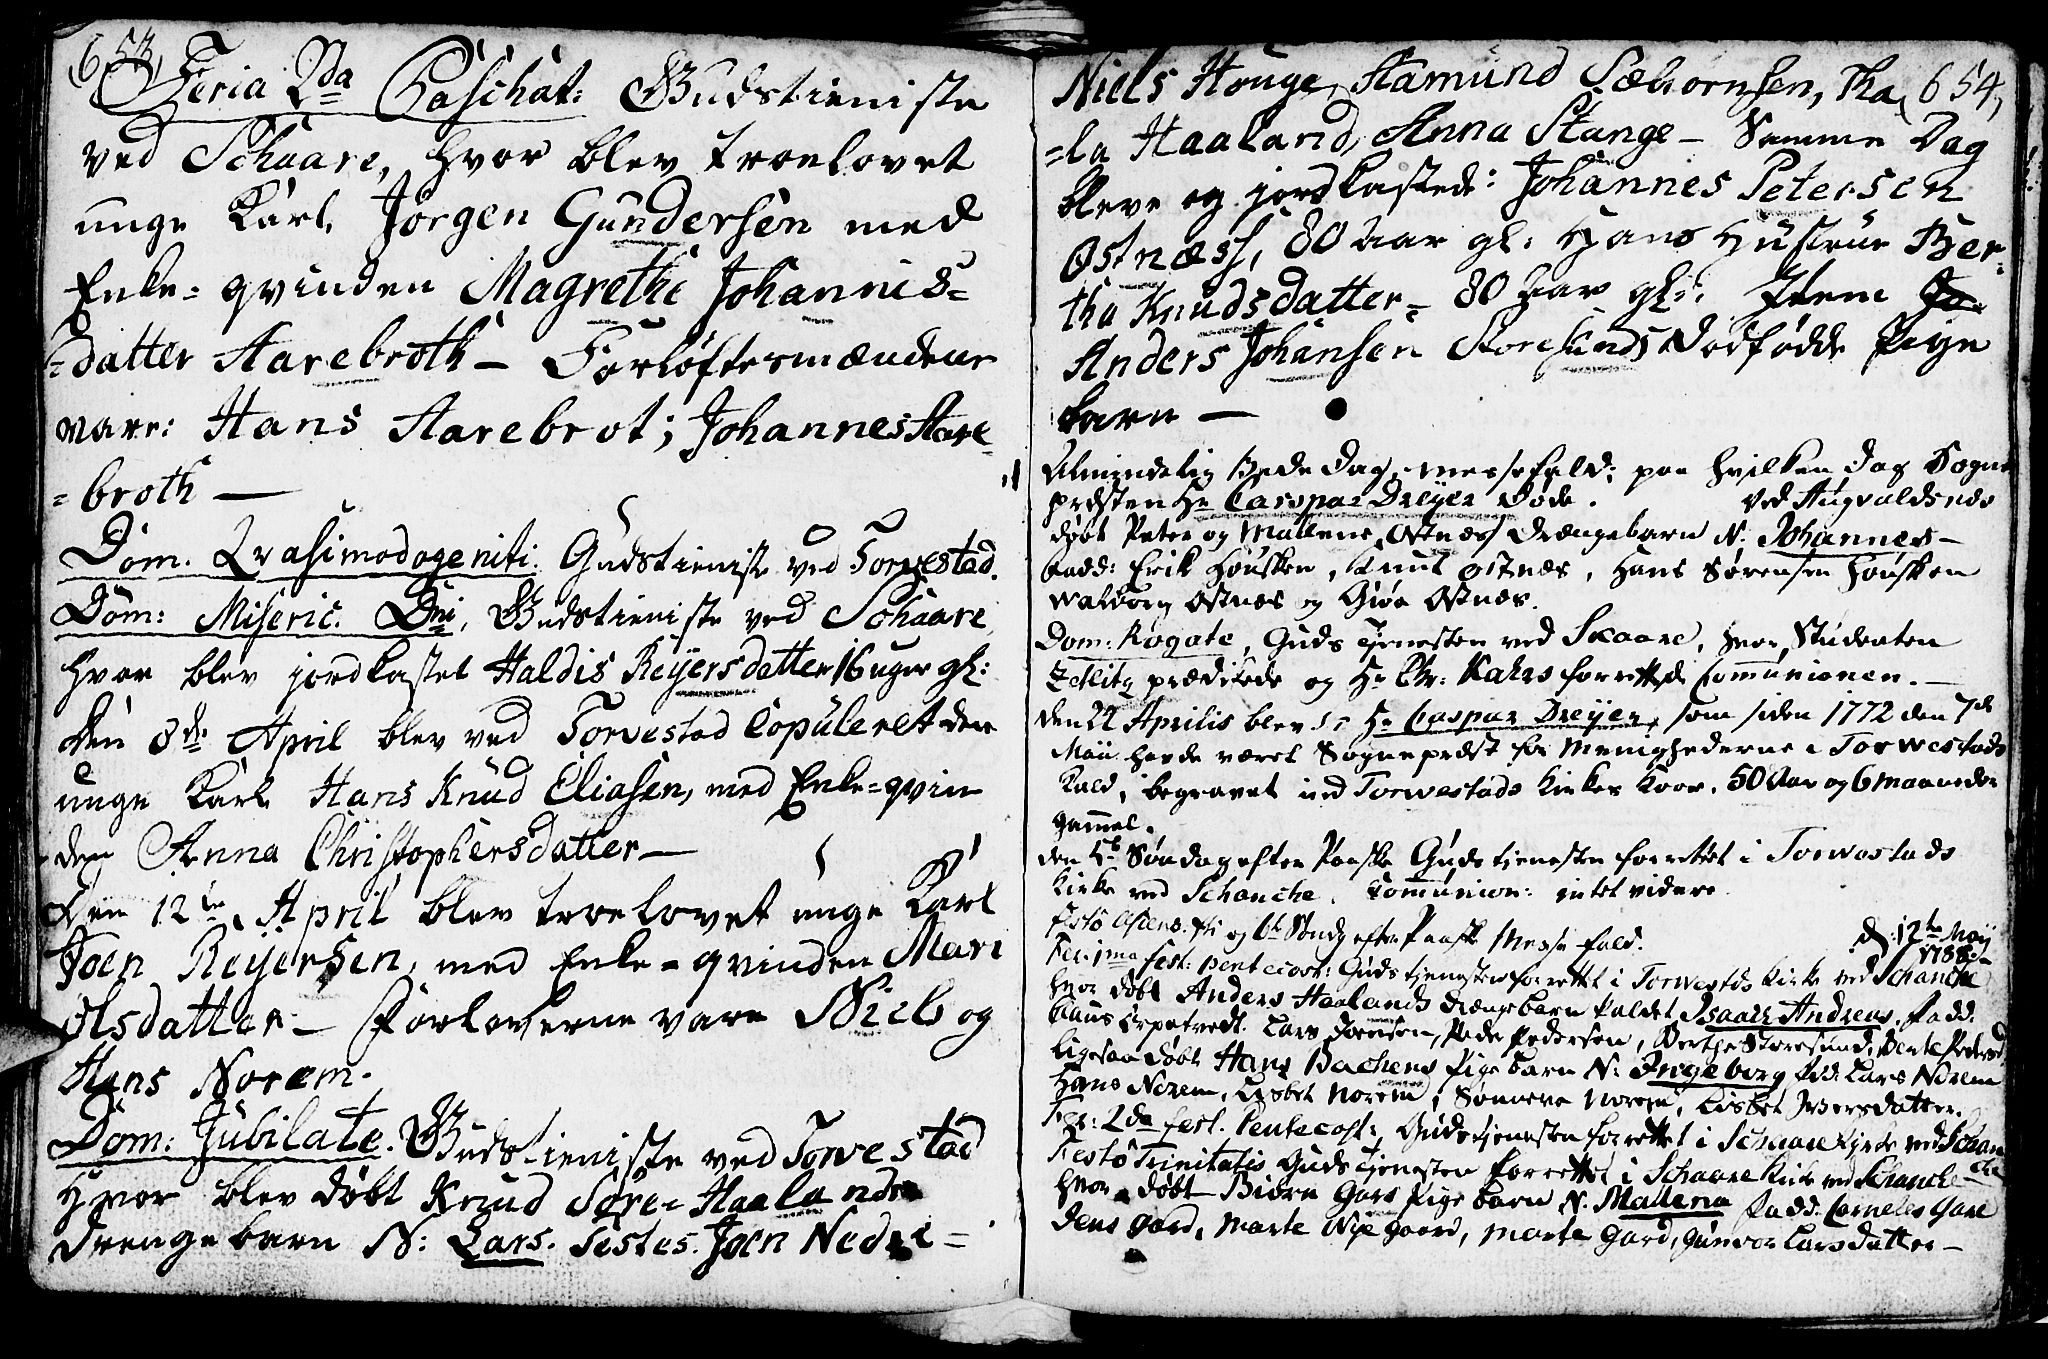 653,
Feria 2da Paschat: Gudstieniste
ved Schaare, hvor blev troelovet
unge Karl Jörgen Gundersen med
Enke=qvinden Magrethe Johannis=
=datter Aarebroth – Forlöftesmændene
vare: Hans Aarebrot; Johannes Aare
=broth —
Dom. Qvasimodogeniti: Gudstieniste ved Torvestad.
Dom: Miseric. Dni, Gudstieniste ved Schaare
hvor blev jordkastet Haldis Reijersdatter 16 uger gl:
den 8de April blev ved Torvestad Copuleret den
unge Karl Hans Knud Eliasen, med Enke=qvin
den Anna Christophersdatter —
Den 12te April blev troelovet unge Karl
Joen Reijersen, med Enke=qvinden Mari
Olsdatter – Forloverne vare Niels og
Hans Norem.
Dom: Jubilate. Gudstieniste ved Torvestad
hvor blev döbt Knud Haalands
drengebarn N: Lars. Testes. Joen Nedre=
654,
Niels Houge, Aamund Sæbiornsen, Tha
=la Haaland, Anna Stange – Samme Dag
bleve og jordkastede: Johannes Petersen
Ostnæss, 80 aar gl: Hans Hustrue Ber=
tha Knudsdatter= 80 aar gl: Item
Anders Johansen Storesunds dödfödde Pige
barn —
Almindelig Bede Dag, messefald: paa hvilken dag Sogne
præsten Hr Casspar Dreÿer döde. ved Augvaldsnæs
döbt Peter og Mallene Ostnæs drængebarn N. Johannes –
fadd: Erik Housken, Knut Ostnæs, Hans Sörensen Housken
Walborg Ostnæs og Giöa Ostnæs.
Dom: Rogate, Guds Tjenesten ved Skaare, hvor Studenten
Zetlitz prædikede og Hr Chr: Kahrs forrettede Communionen. –
den 22 Aprilis blev Hr Caspar Dreÿer, som siden 1772 den 7de
Maii havde været Sognepræst for Menighederne i Torwestads
Kald, begravet ved Torwestads Kirkes Koor, 50 Aar og 6 maaneder
gammel.
den 5te Söndag efter Paaske Guds tjenesten forrettet i Torwestads
Kirke ved Schanche. Communion: intet videre.
Festo Ascens. og 6te Söndg efter Paaske Messe fald.
d: 12te Maij
1788.
Fer: 1ma fest: Pentecost: Guds tjenesten forrettet i Torwestds Kirke ved Schanche
hvor döbt Anders Haalands drængebarn kaldet Isaach Andreas, Fadd.
Claus Erpetvedt. Lars Joensen, Peder Pedersen, Berthe Storesund, Bente Pedersd
ligesaa döbt Hans Bachens Pige barn N: Ingeborg fad: Lars Norem
Hans Norem, Lisbet Norem, Sönneve Norem, Lisbet Iversdatter.
Fer: 2da fest. Pentecost:, Guds tjenesten forrettet i Schaare Kirke ved Schan
che
Festo Trinitatis Guds tjenesten forrettet i Schaare Kirke ved Schanche –
hvor döbt Biörn Gars Pige barn N. Mallena fadd. Corneles Gare
dens Gard, Marte Nye gaard, Marte Gard, Gunvor Larsdatter –